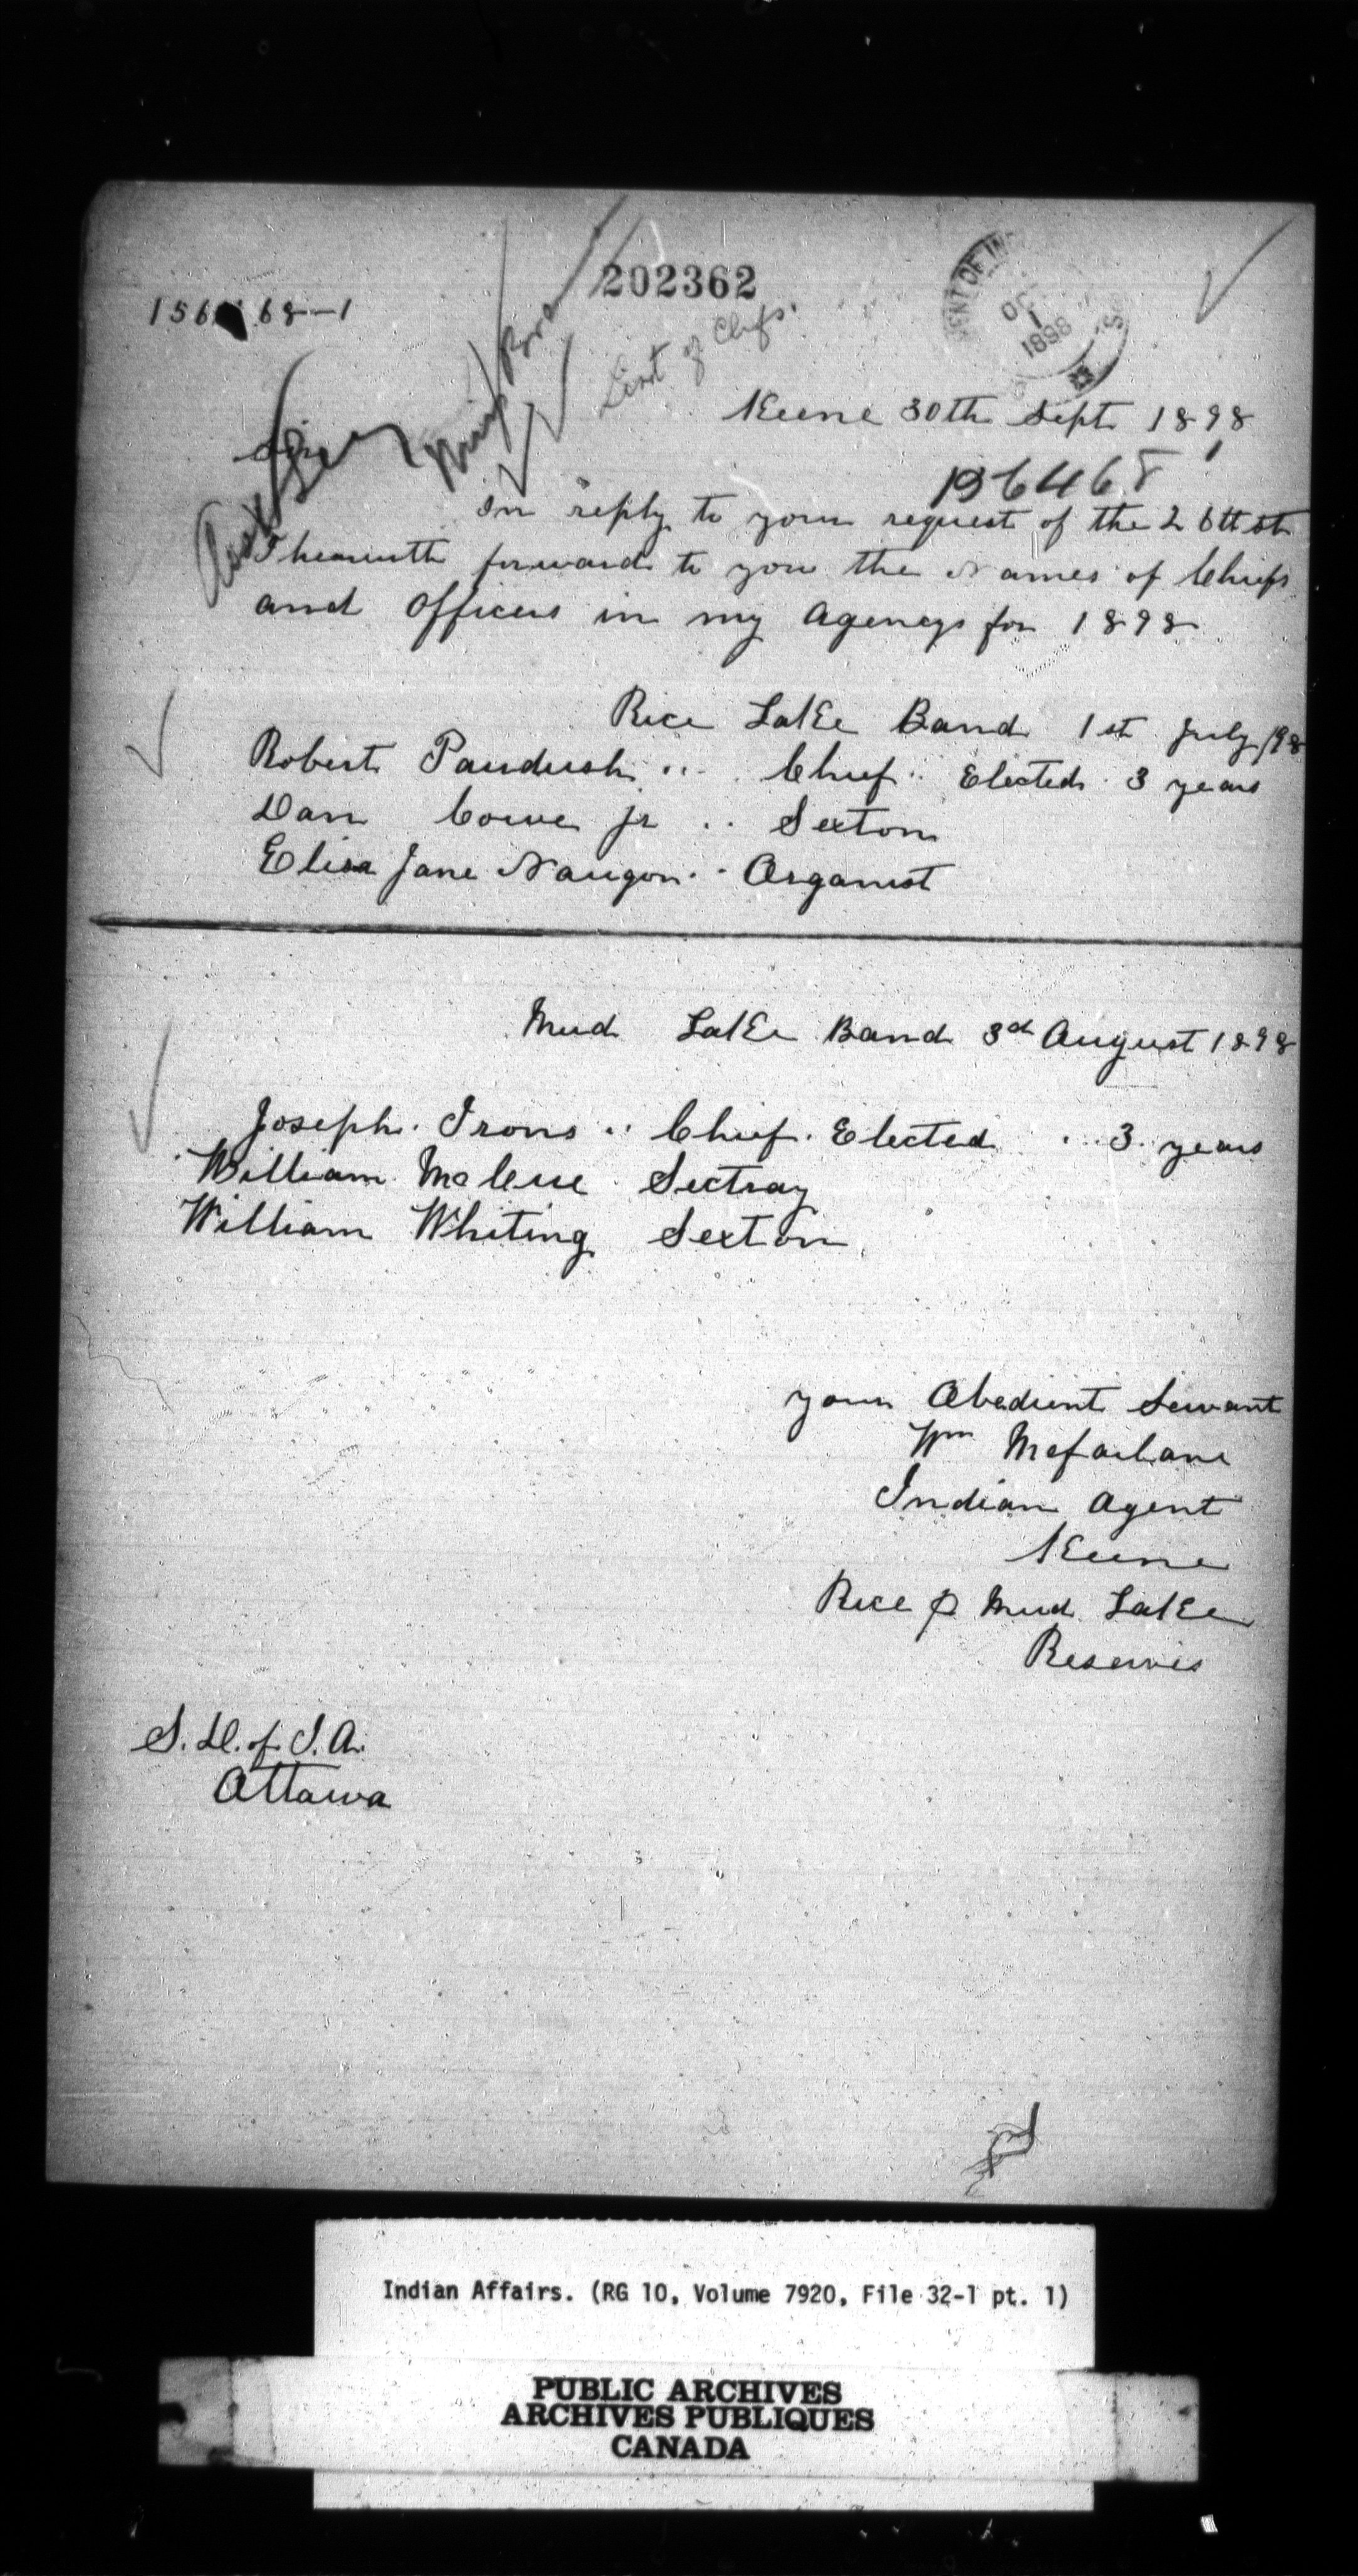 202362
List of Chfs.
OCT 1 1898
Keene 30th Sept 1898
Sir
196468
In reply to your request of the 26th st
I herewith forward to you the Names of Chiefs
and Officers in my Agency for 1898
Rice Lake Band 1st July /98
Robert Paudush .. Chief .. Elected 3 years
Dan Cowe jr .. Sexton
Elisa Jane Naugon .. Organist
Mud Lake Band 3d August 1898
Joseph Irons .. Chief. Elected .. 3 years
William McCue Sectray
William Whiting Sexton
your Obedient Servant
Wm McFarlane
Indian Agent
Keene
Rice & Mud Lake
Reserves
S. D. of I. A.
Ottawa
Indian Affairs. (RG 10, Volume 7920, File 32-1 pt. 1)
PUBLIC ARCHIVES
ARCHIVES PUBLIQUES
CANADA